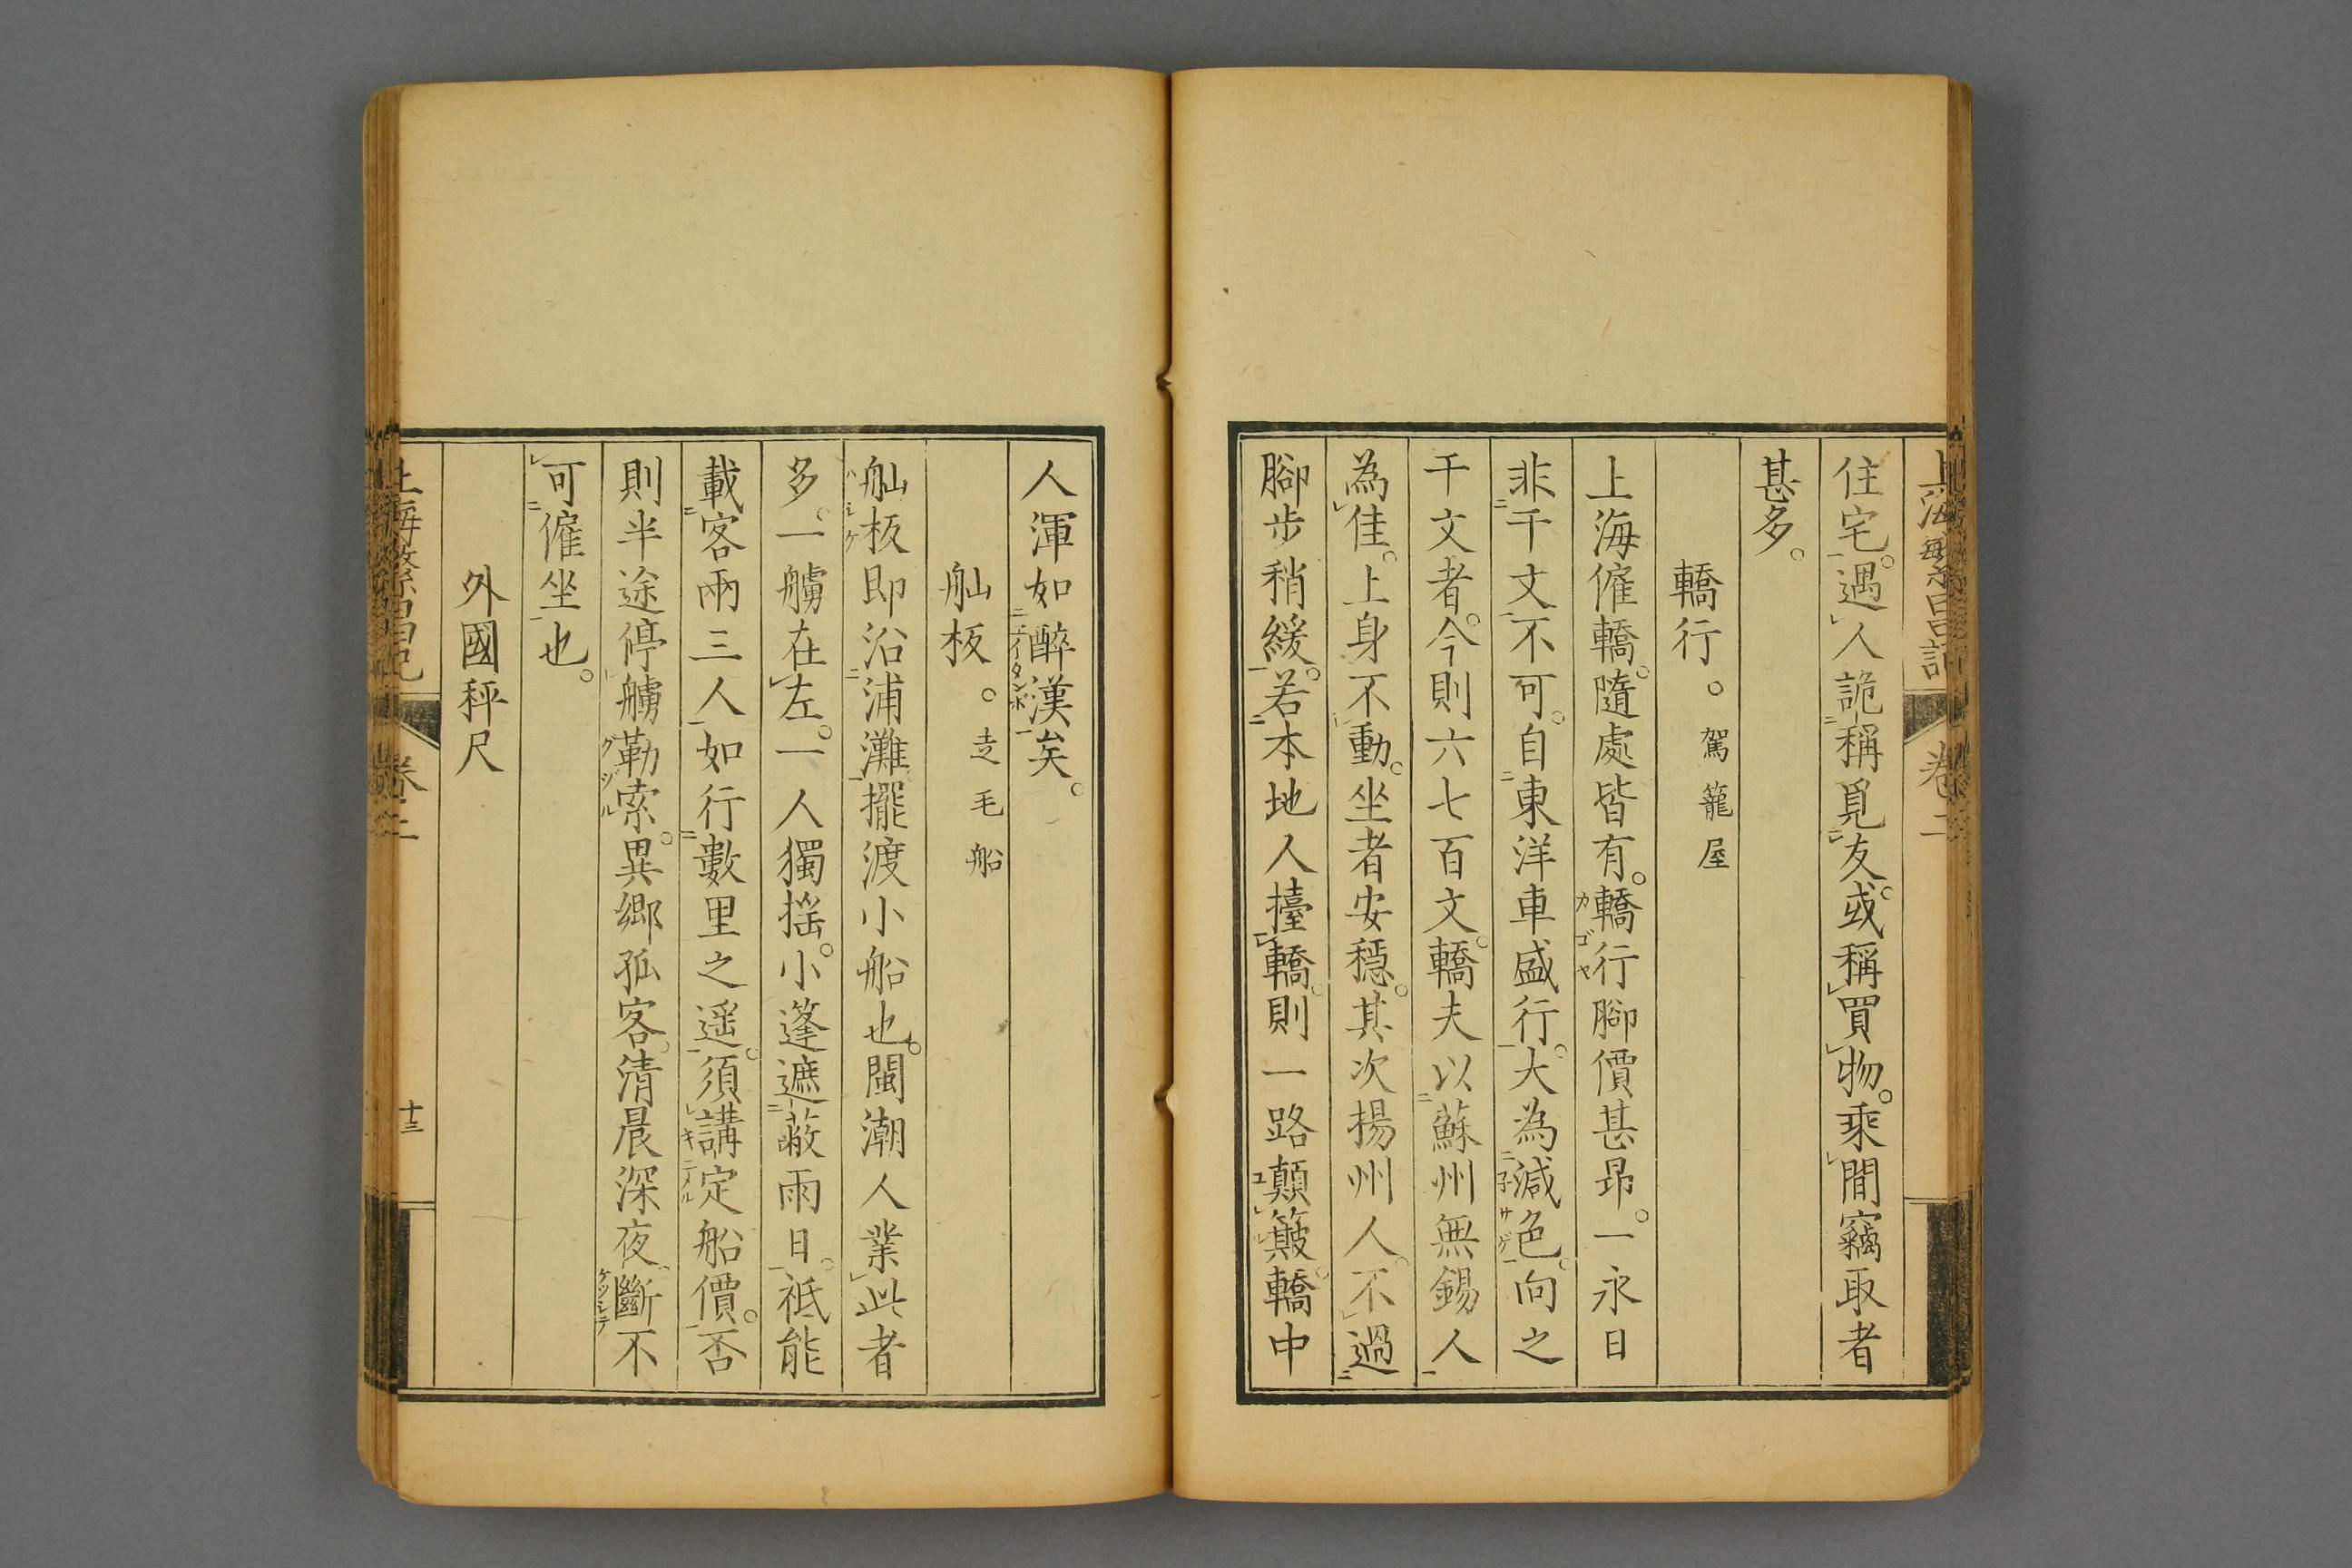 上海繁昌記 卷二
住宅。遇人詭稱覓友。或稱買物。乘間竊取者
甚多。
轎行。駕籠屋
上海僱轎。隨處皆有。轎行腳價甚昂。一永日
非千文不可。自東洋車盛行。大為減色。向之
千文者。今則六七百文。轎夫以蘇州無錫人
為佳。上身不動。坐者安穩。其次揚州人。不過
腳步稍緩。若本地人擡轎。則一路顛簸。轎中
人渾如醉漢矣。
舢板。走毛船
舢板即沿浦灘擺渡小船也。閩潮人業此者
多。一艣在左。一人獨搖。小篷遮蔽雨日。祗能
載客兩三人。如行數里之遥。須講定船價。否
則半途停艣勒索。異鄉孤客。清晨深夜。斷不
可僱坐也。
外國秤尺
上海繁昌記 卷二 十三